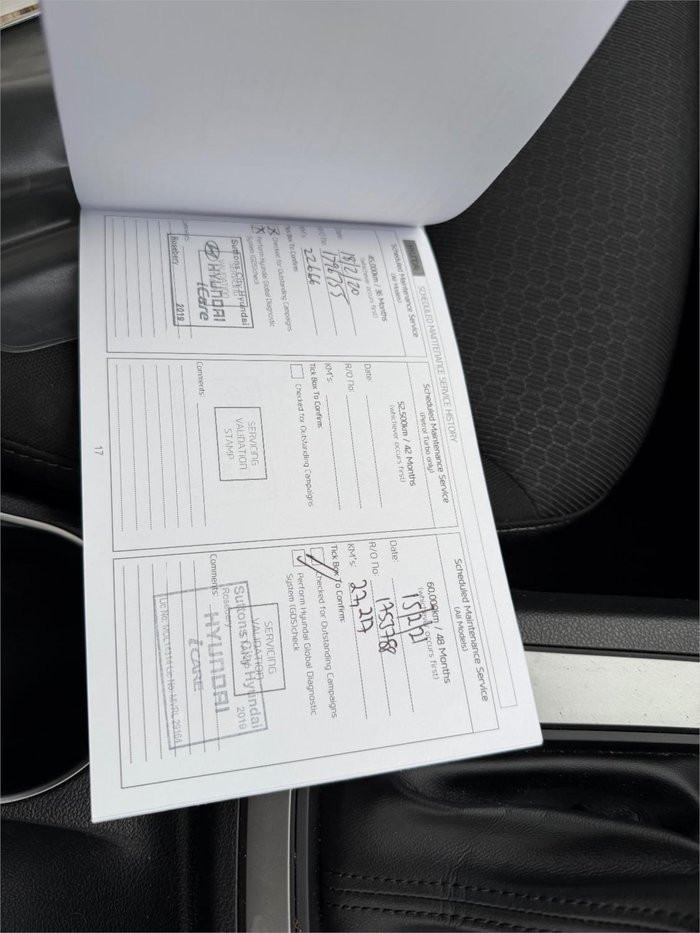 SCHEDULED MAINTENANCE SERVICE HISTORY
Scheduled Maintenance Service
(All Models)
45,000km / 36 Months
(whichever occurs first)
Date: 18/2/20
R/O No: 1796755
KM's: 22666
Tick Box To Confirm:
Checked for Outstanding Campaigns
Perform Hyundai Global Diagnostic
System (GDS)check
Suttons City Hyundai
VALIDATION
HYUNDAI
iCare
Rosebery 2019
Comments:
Scheduled Maintenance Service
(Petrol Turbo only)
52,500km / 42 Months
(whichever occurs first)
Date:
R/O No:
KM's:
Tick Box To Confirm:
Checked for Outstanding Campaigns
SERVICING
VALIDATION
STAMP
Comments:
Scheduled Maintenance Service
(All Models)
60,000km / 48 Months
(whichever occurs first)
Date: 15/2/21
R/O No: 1755788
KM's: 27,217
Tick Box To Confirm:
Checked for Outstanding Campaigns
Perform Hyundai Global Diagnostic
System (GDS)check
SERVICING
VALIDATION
Suttons City Hyundai
Rosebery 2019
HYUNDAI
iCARE
Comments:
17